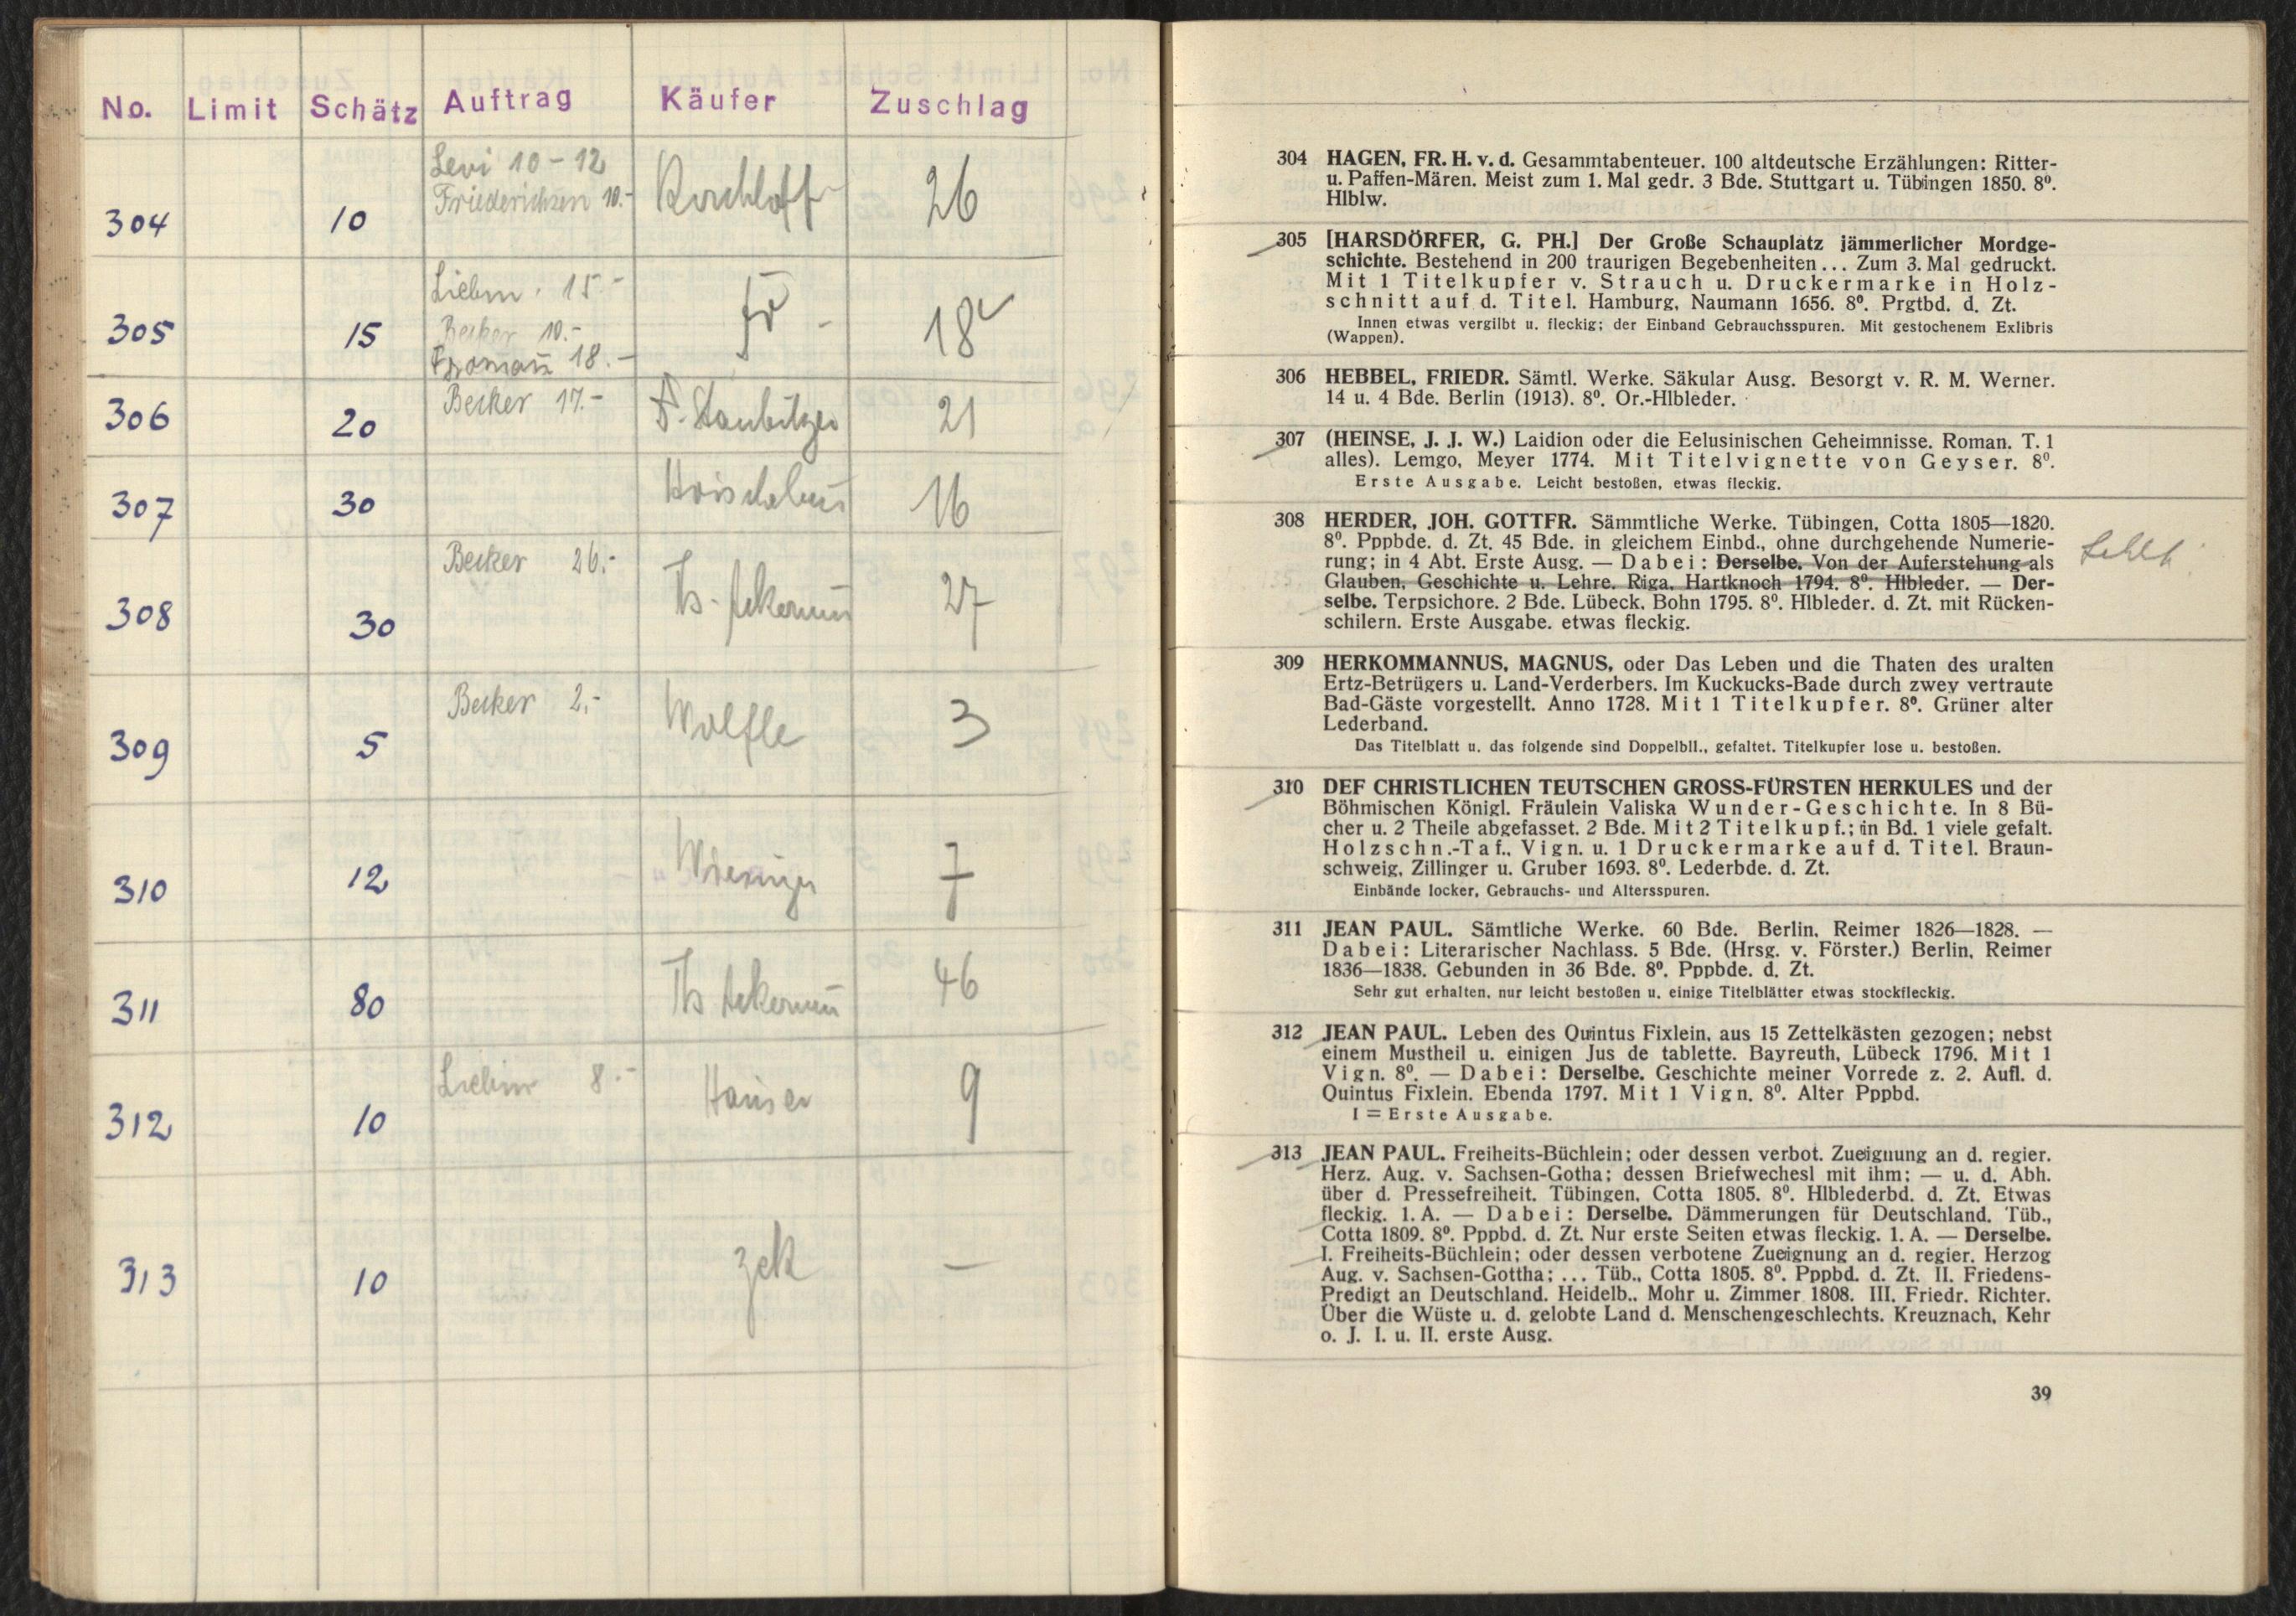 No. Limit Schätz Auftrag Käufer Zuschlag
Levi 10-12
Friederichsen 10.-
304 10 26
Liebm. 15-
Becker 10.-
18.-
305 15 18
Becker 17.-
306 20 21
307 30 16
Becker 26.-
308 30 Th. Ackermann 27
Becker 2.-
309 5 Wölfle 3
310 12 7
311 80 Th Ackermann 46
Liebm 8.-
312 10 Hauser 9
313 10 zck —
304 HAGEN, FR. H. v. d. Gesammtabenteuer. 100 altdeutsche Erzählungen: Ritter-
u. Paffen-Mären. Meist zum 1. Mal gedr. 3 Bde. Stuttgart u. Tübingen 1850. 8⁰.
Hlblw.
305 [HARSDÖRFER, G. PH.] Der Große Schauplatz jämmerlicher Mordge-
schichte. Bestehend in 200 traurigen Begebenheiten ... Zum 3. Mal gedruckt.
Mit 1 Titelkupfer v. Strauch u. Druckermarke in Holz-
schnitt auf d. Titel. Hamburg, Naumann 1656. 8⁰. Prgtbd. d. Zt.
Innen etwas vergilbt u. fleckig; der Einband Gebrauchsspuren. Mit gestochenem Exlibris
(Wappen).
306 HEBBEL, FRIEDR. Sämtl. Werke. Säkular Ausg. Besorgt v. R. M. Werner.
14 u. 4 Bde. Berlin (1913). 8⁰. Or.-Hlbleder.
307 (HEINSE, J. J. W.) Laidion oder die Eelusinischen Geheimnisse. Roman. T. 1
alles). Lemgo, Meyer 1774. Mit Titelvignette von Geyser. 8⁰.
Erste Ausgabe. Leicht bestoßen, etwas fleckig.
308 HERDER, JOH. GOTTFR. Sämmtliche Werke. Tübingen, Cotta 1805—1820.
8⁰. Pppbde. d. Zt. 45 Bde. in gleichem Einbd., ohne durchgehende Numerie-
rung; in 4 Abt. Erste Ausg. — Dabei: Derselbe. Von der Auferstehung als
Glauben, Geschichte u. Lehre. Riga, Hartknoch 1794. 8⁰. Hlbleder. — Der-
selbe. Terpsichore. 2 Bde. Lübeck, Bohn 1795. 8⁰. Hlbleder. d. Zt. mit Rücken-
schilern. Erste Ausgabe. etwas fleckig.
fehlt.
309 HERKOMMANNUS, MAGNUS, oder Das Leben und die Thaten des uralten
Ertz-Betrügers u. Land-Verderbers. Im Kuckucks-Bade durch zwey vertraute
Bad-Gäste vorgestellt. Anno 1728. Mit 1 Titelkupfer. 8⁰. Grüner alter
Lederband.
Das Titelblatt u. das folgende sind Doppelbll., gefaltet. Titelkupfer lose u. bestoßen.
310 DEF CHRISTLICHEN TEUTSCHEN GROSS-FÜRSTEN HERKULES und der
Böhmischen Königl. Fräulein Valiska Wunder-Geschichte. In 8 Bü-
cher u. 2 Theile abgefasset. 2 Bde. Mit 2 Titelkupf.; in Bd. 1 viele gefalt.
Holzschn.-Taf., Vign. u. 1 Druckermarke auf d. Titel. Braun-
schweig, Zillinger u. Gruber 1693. 8⁰. Lederbde. d. Zt.
Einbände locker, Gebrauchs- und Altersspuren.
311 JEAN PAUL. Sämtliche Werke. 60 Bde. Berlin, Reimer 1826—1828. —
Dabei: Literarischer Nachlass. 5 Bde. (Hrsg. v. Förster.) Berlin, Reimer
1836—1838. Gebunden in 36 Bde. 8⁰. Pppbde. d. Zt.
Sehr gut erhalten, nur leicht bestoßen u. einige Titelblätter etwas stockfleckig.
312 JEAN PAUL. Leben des Quintus Fixlein, aus 15 Zettelkästen gezogen; nebst
einem Mustheil u. einigen Jus de tablette. Bayreuth, Lübeck 1796. Mit 1
Vign. 8⁰. — Dabei: Derselbe. Geschichte meiner Vorrede z. 2. Aufl. d.
Quintus Fixlein. Ebenda 1797. Mit 1 Vign. 8⁰. Alter Pppbd.
I = Erste Ausgabe.
313 JEAN PAUL. Freiheits-Büchlein; oder dessen verbot. Zueignung an d. regier.
Herz. Aug. v. Sachsen-Gotha; dessen Briefwechesl mit ihm; — u. d. Abh.
über d. Pressefreiheit. Tübingen, Cotta 1805. 8⁰. Hlblederbd. d. Zt. Etwas
fleckig. 1. A. — Dabei: Derselbe. Dämmerungen für Deutschland. Tüb.,
Cotta 1809. 8⁰. Pppbd. d. Zt. Nur erste Seiten etwas fleckig. 1. A. — Derselbe.
I. Freiheits-Büchlein; oder dessen verbotene Zueignung an d. regier. Herzog
Aug. v. Sachsen-Gottha; ... Tüb., Cotta 1805. 8⁰. Pppbd. d. Zt. II. Friedens-
Predigt an Deutschland. Heidelb., Mohr u. Zimmer 1808. III. Friedr. Richter.
Über die Wüste u. d. gelobte Land d. Menschengeschlechts. Kreuznach, Kehr
o. J. I. u. II. erste Ausg.
39